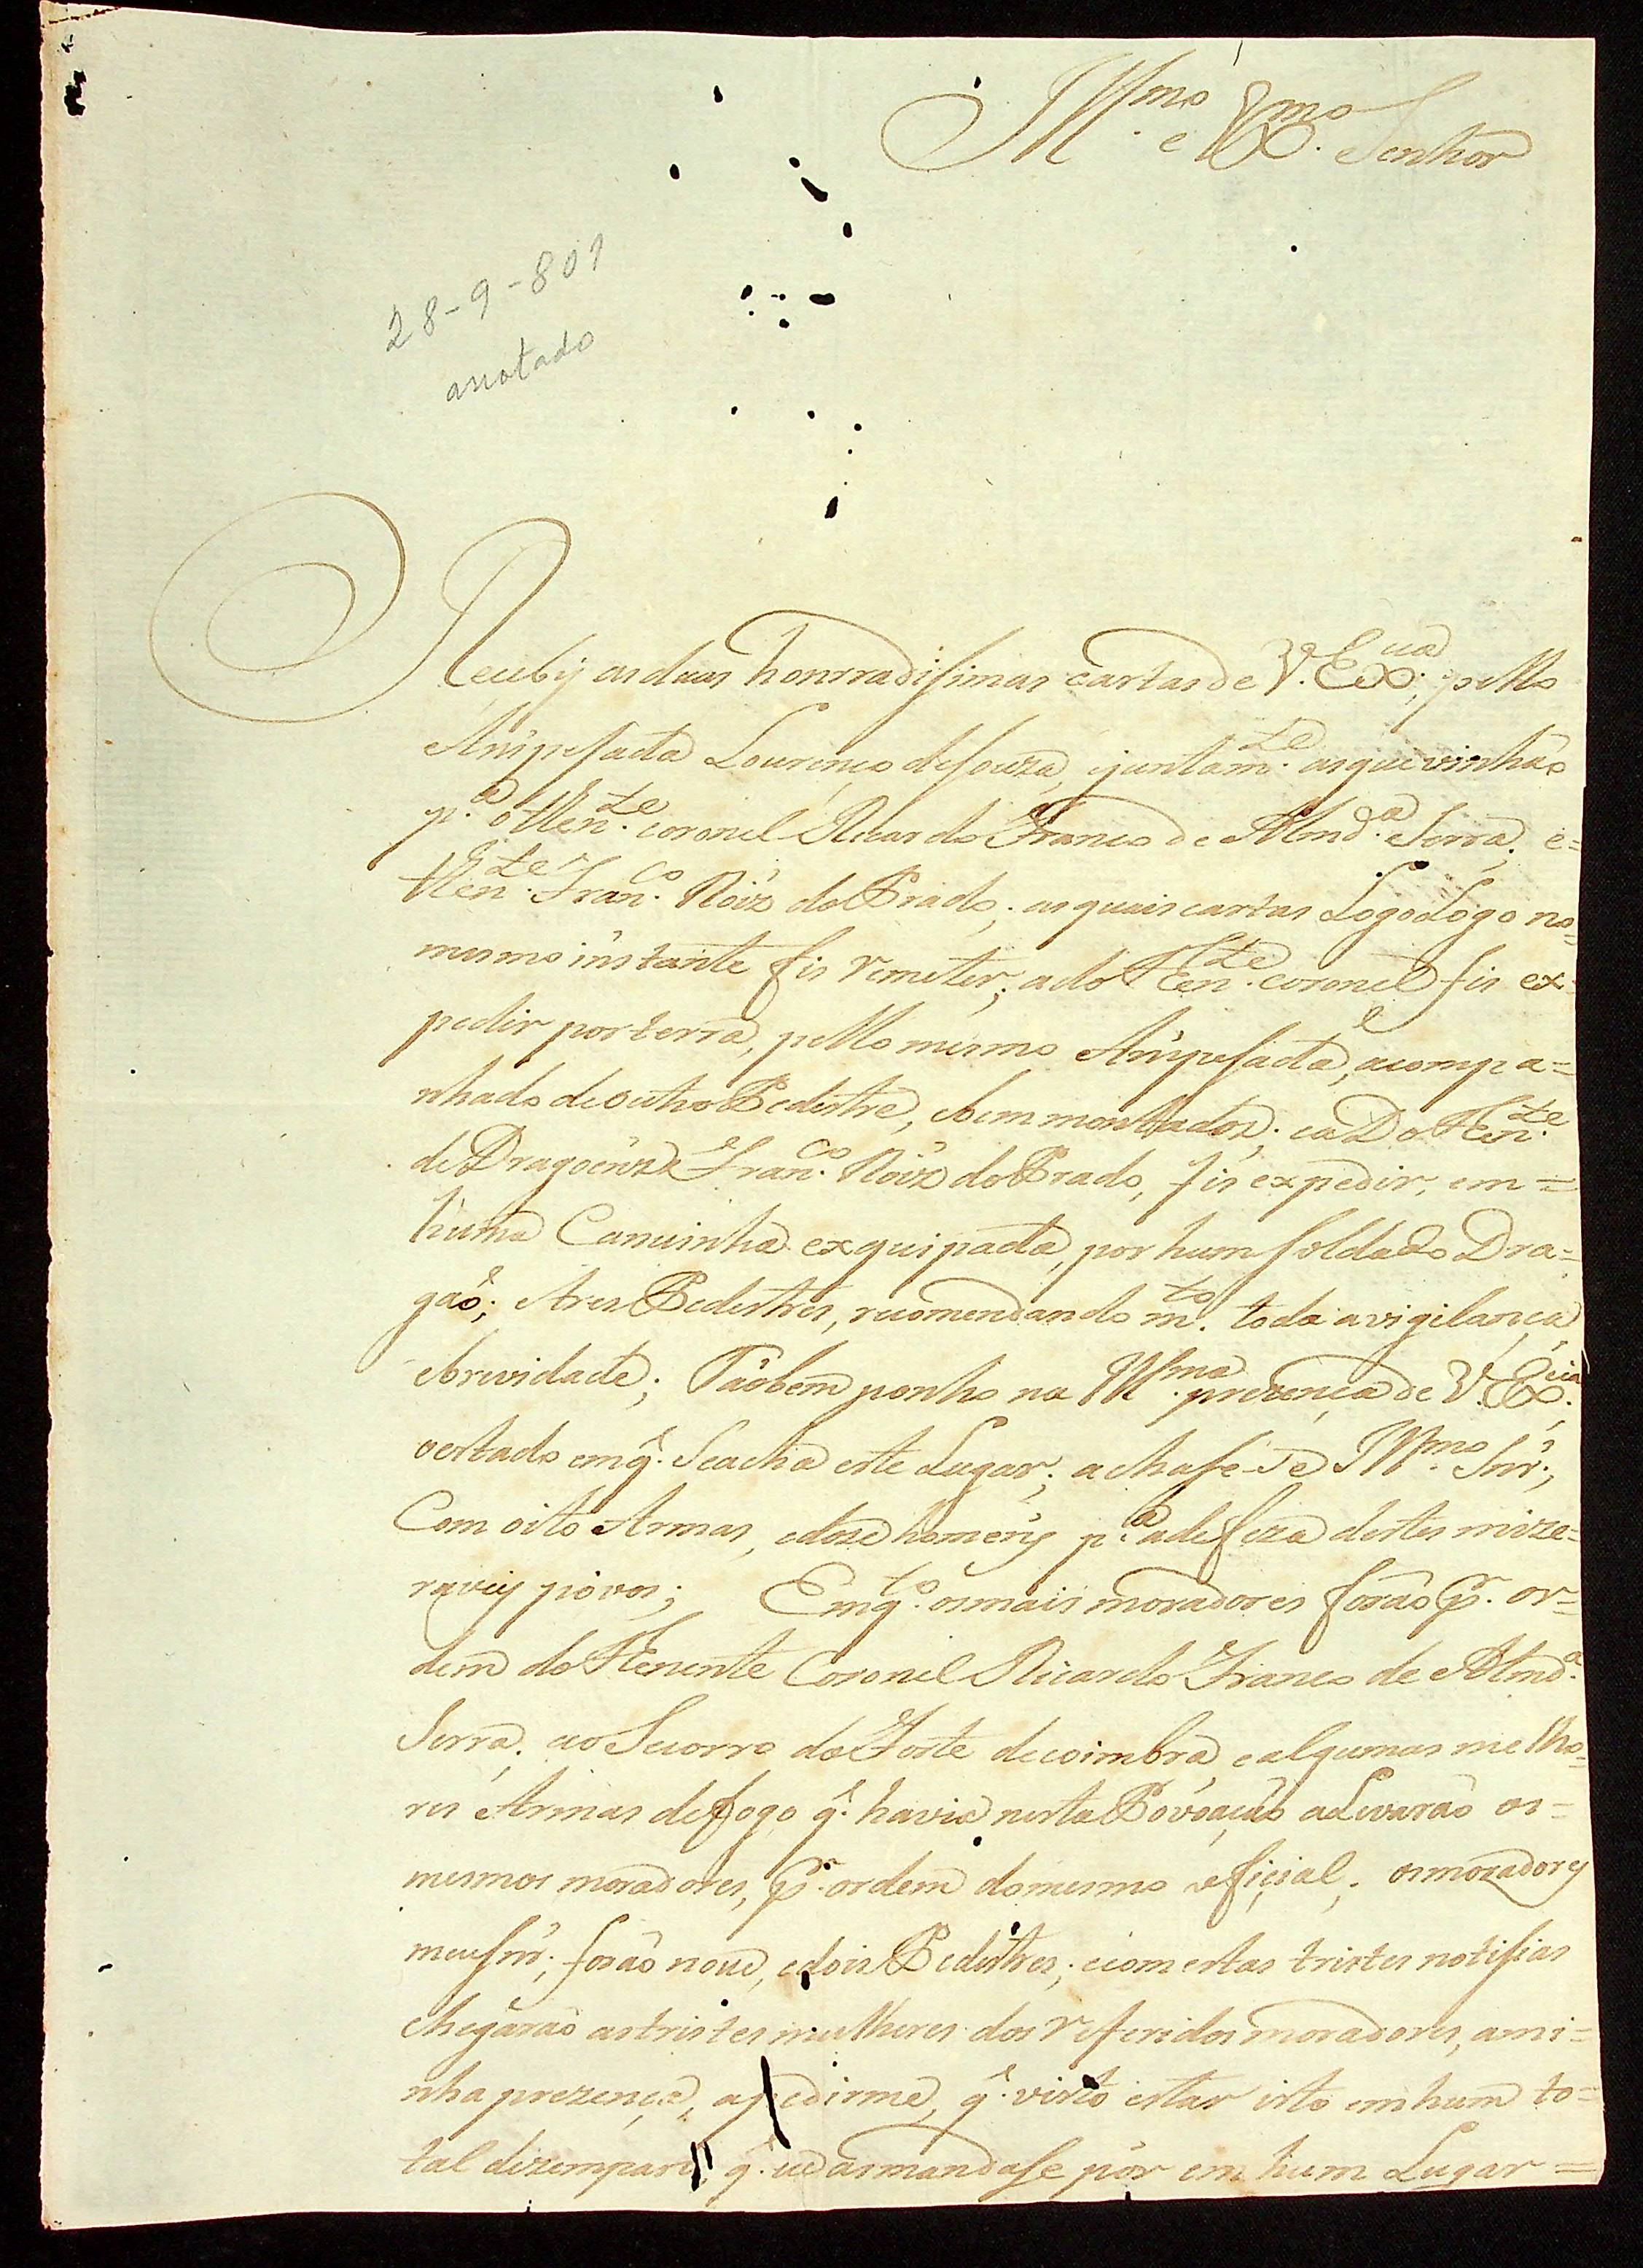 Ill.mo e Ex.mo Senhor
28-9-801
anotado
Receby as duas honrradisimas cartas de V. Ex.cia, pello
Anspesada Lourenço de Souza, ejuntam.te as que vinhão
p.a o Then.te coronel Ricardo Franco de Almd.a Serra; e=
Then.te Fran.co Roiz do Prado; as quais cartas Logo Logo no=
mesmo instante fis remeter; a do Ten.te coronel fis ex=
pedir por terra, pello mesmo Anspesada, acompa=
nhado de outro Pedestre, e bem montados; ea Do Ten.te
de Dragoens Fran.co Roiz do Prado, fis expedir, em=
huma Canuinha exquipada, por hum soldado Dra=
gaõ; e tres Pedestres, recomendando m.to toda a vigilança
ebrevidade; Taõbem ponho na Ill.ma prezença de V. Ex.cia
o estado em q. Se acha este Lugar; a chase-se Ill.mo Snr.,
Com oito Armas, e doze homens p.a a defeza destes mize=
raveis povos; Emq.to os mais moradores foraõ p.r or=
dem do Tenente Coronel Ricardo Franco de Almd.a
Serra; ao Secorro do Forte de coimbra, e algumas melho=
res Armas de fogo q. havia nesta Povoaçaõ as Levaraõ os=
mesmos moradores, p.r ordem do mesmo oficial; os moradores
meu Snr.; foraõ nove, e dois Pedestres; e com estas tristes notisias
chegaraõ as tristes mulheres dos referidos moradores, a mi=
nha prezença, a pedirme, q. visto estar isto em hum to=
tal dezemparo, q. as mandase pôr em hum Lugar=